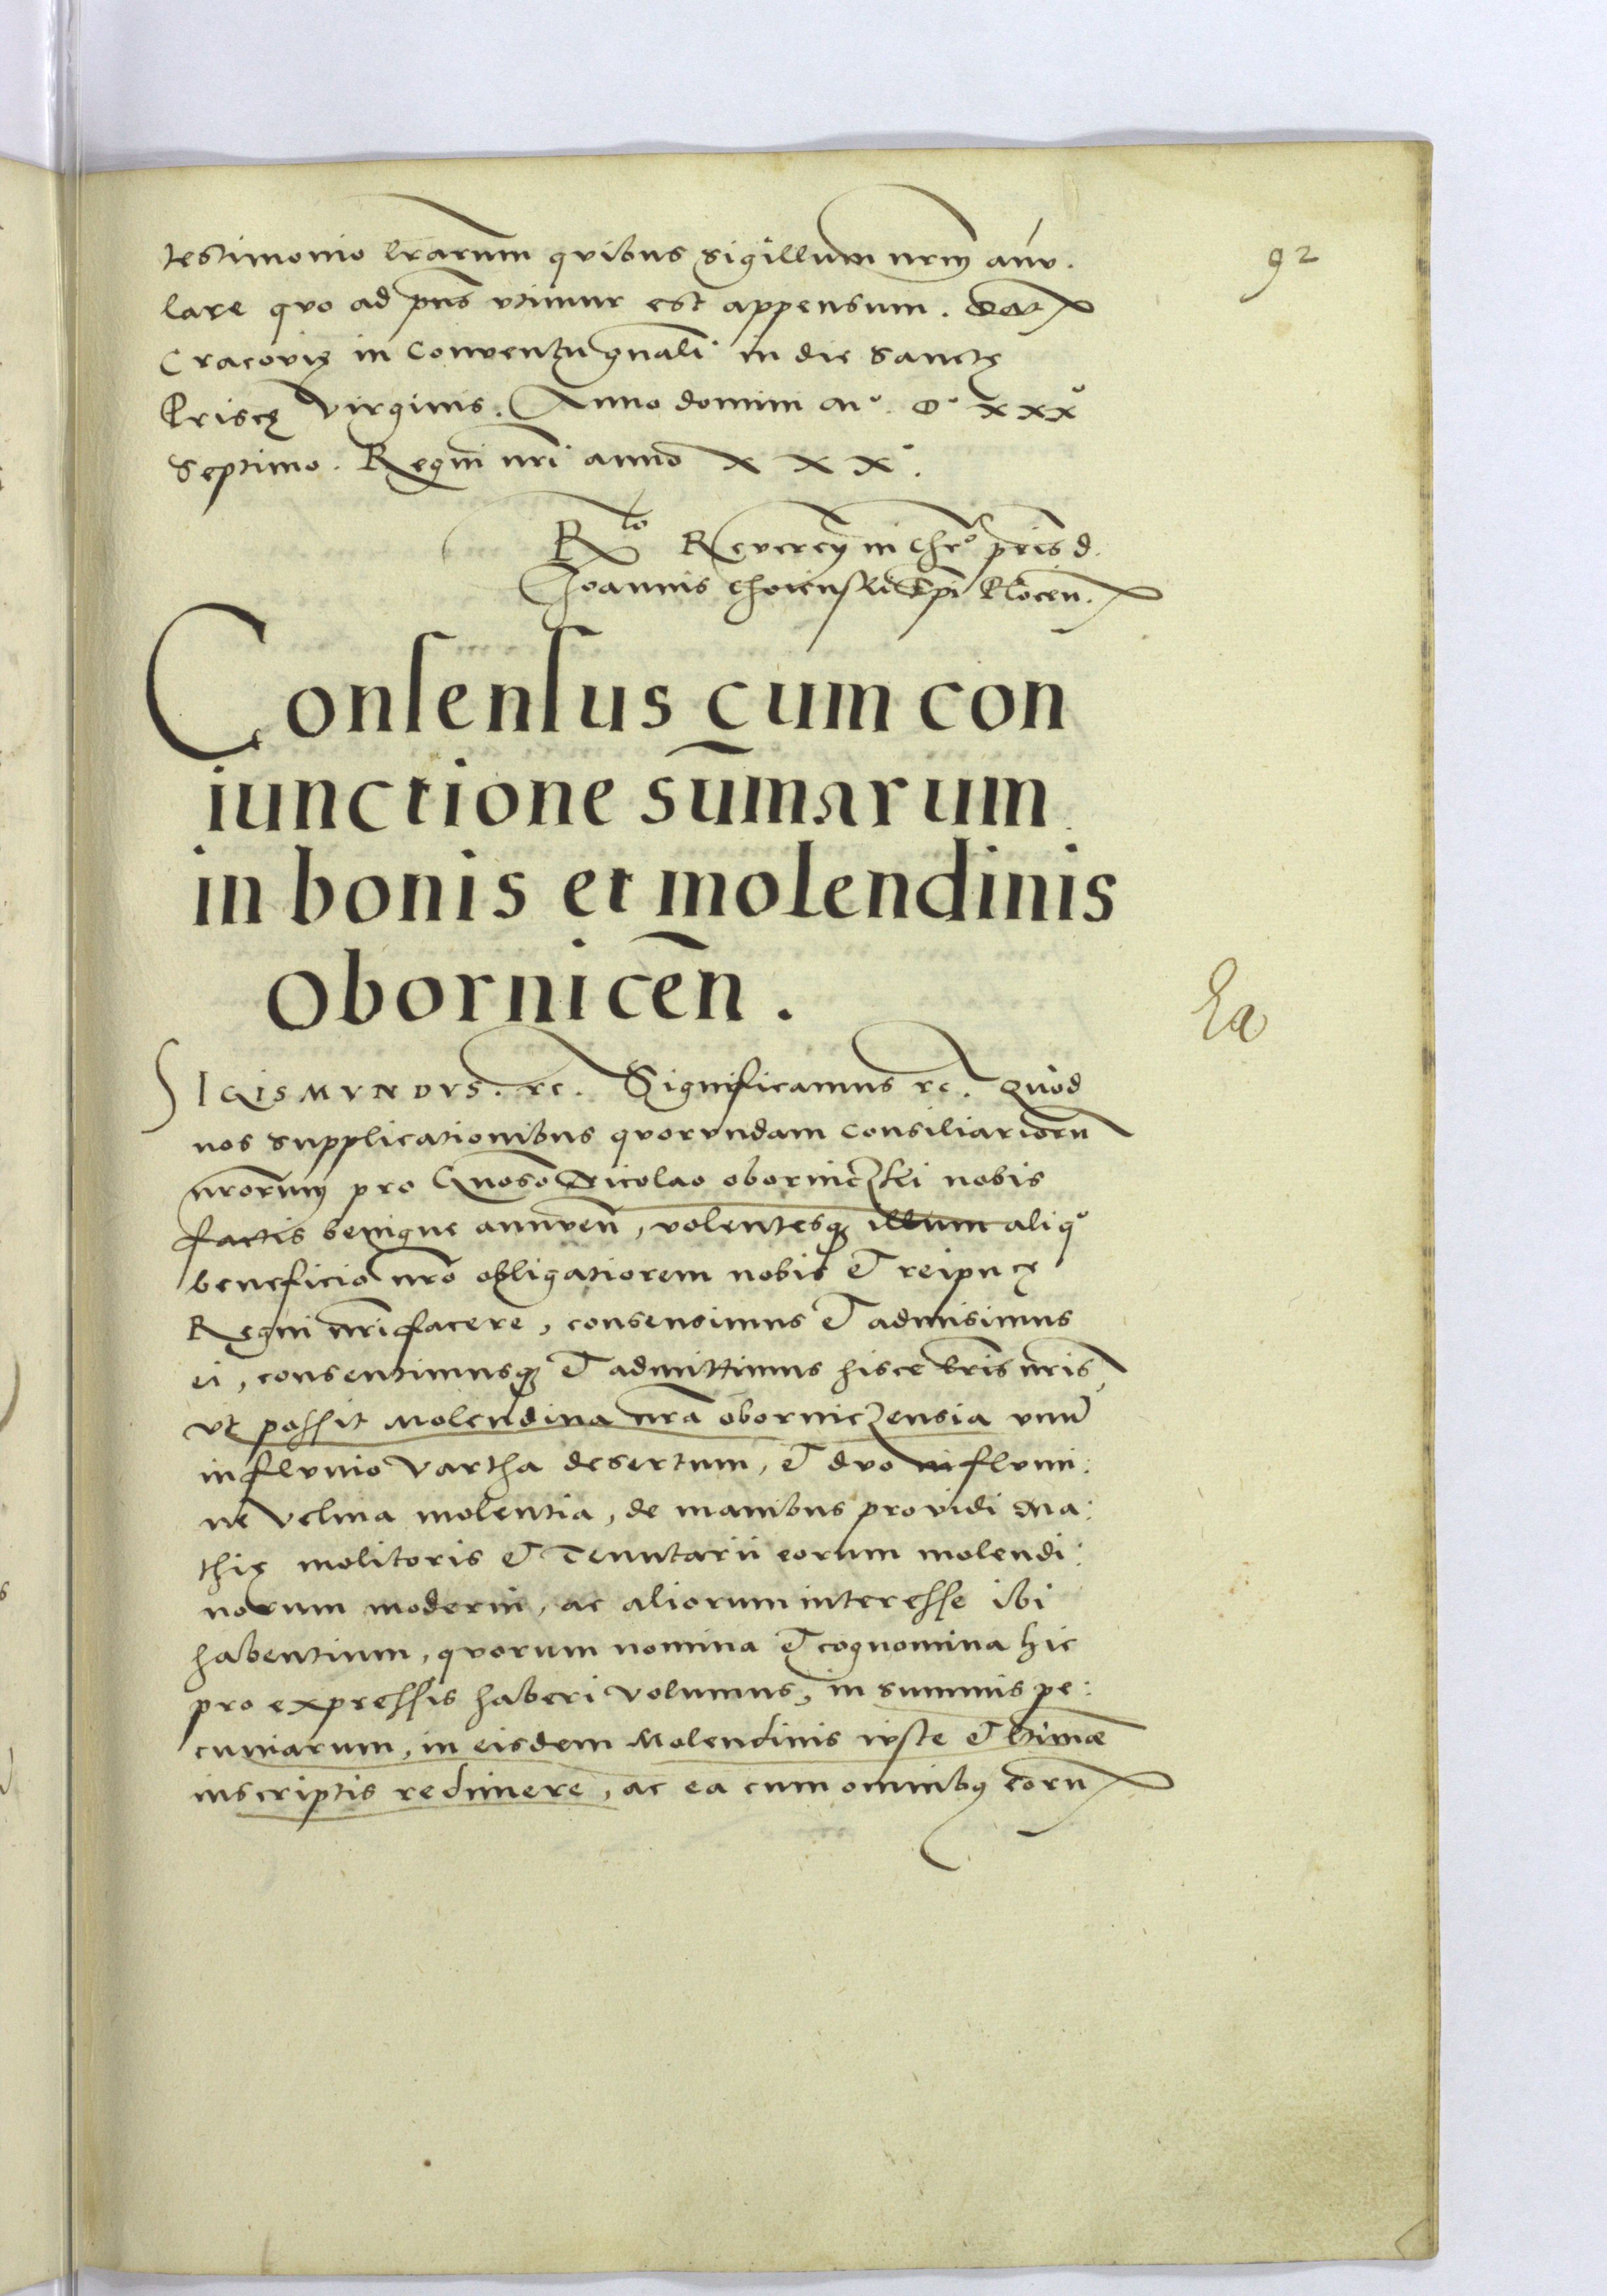 92
testimonio lr̃arum quibus sigillum nr̃m anu.
lare quo ad pñs utimur est appensum. Dat
Cracovię in Conventu gñali in die Sanctę
Priscę Virginis. Anno domini Mº. Dº xxxº
Septimo. Regni nr̃i anno xxxº.
Rᵗⁱᵒ Reveren̄ in Chrº pr̃is d.
Joannis Choienski Ep̃i Plocen̄.
Consensus cum con
iunctione sum̄arum
in bonis et molendinis
obornicen̄.
Ea
SIGISMVNDVS. rc. Significamus rc. Quod
nos supplicationibus quorundam consiliariorū
nr̃orum pro Gnoso Nicolao oborniczki nobis
factis benigne annuen̄, volentesq; illum aliqº
beneficio nr̃o obligatiorem nobis et reipucę
Regni nr̃i facere, consensimus et admisimus
ei, consentimusq; et admittimus hisce lr̃is nr̃is,
ut possit Molendina nr̃a oborniczensia unū
in fluvio Vartha desertum, et duo in flumi:
ne Velma molentia, de manibus providi Ma:
thię molitoris et Tenutarii eorum molendi:
norum moderni, ac aliorum interesse ibi
habentium, quorum nomina et cognomina hic
pro expressis haberi volumus, in summis pe:
cuniarum, in eisdem Molendinis iuste et ltimæ
inscriptis redimere, ac ea cum omnibus eorū